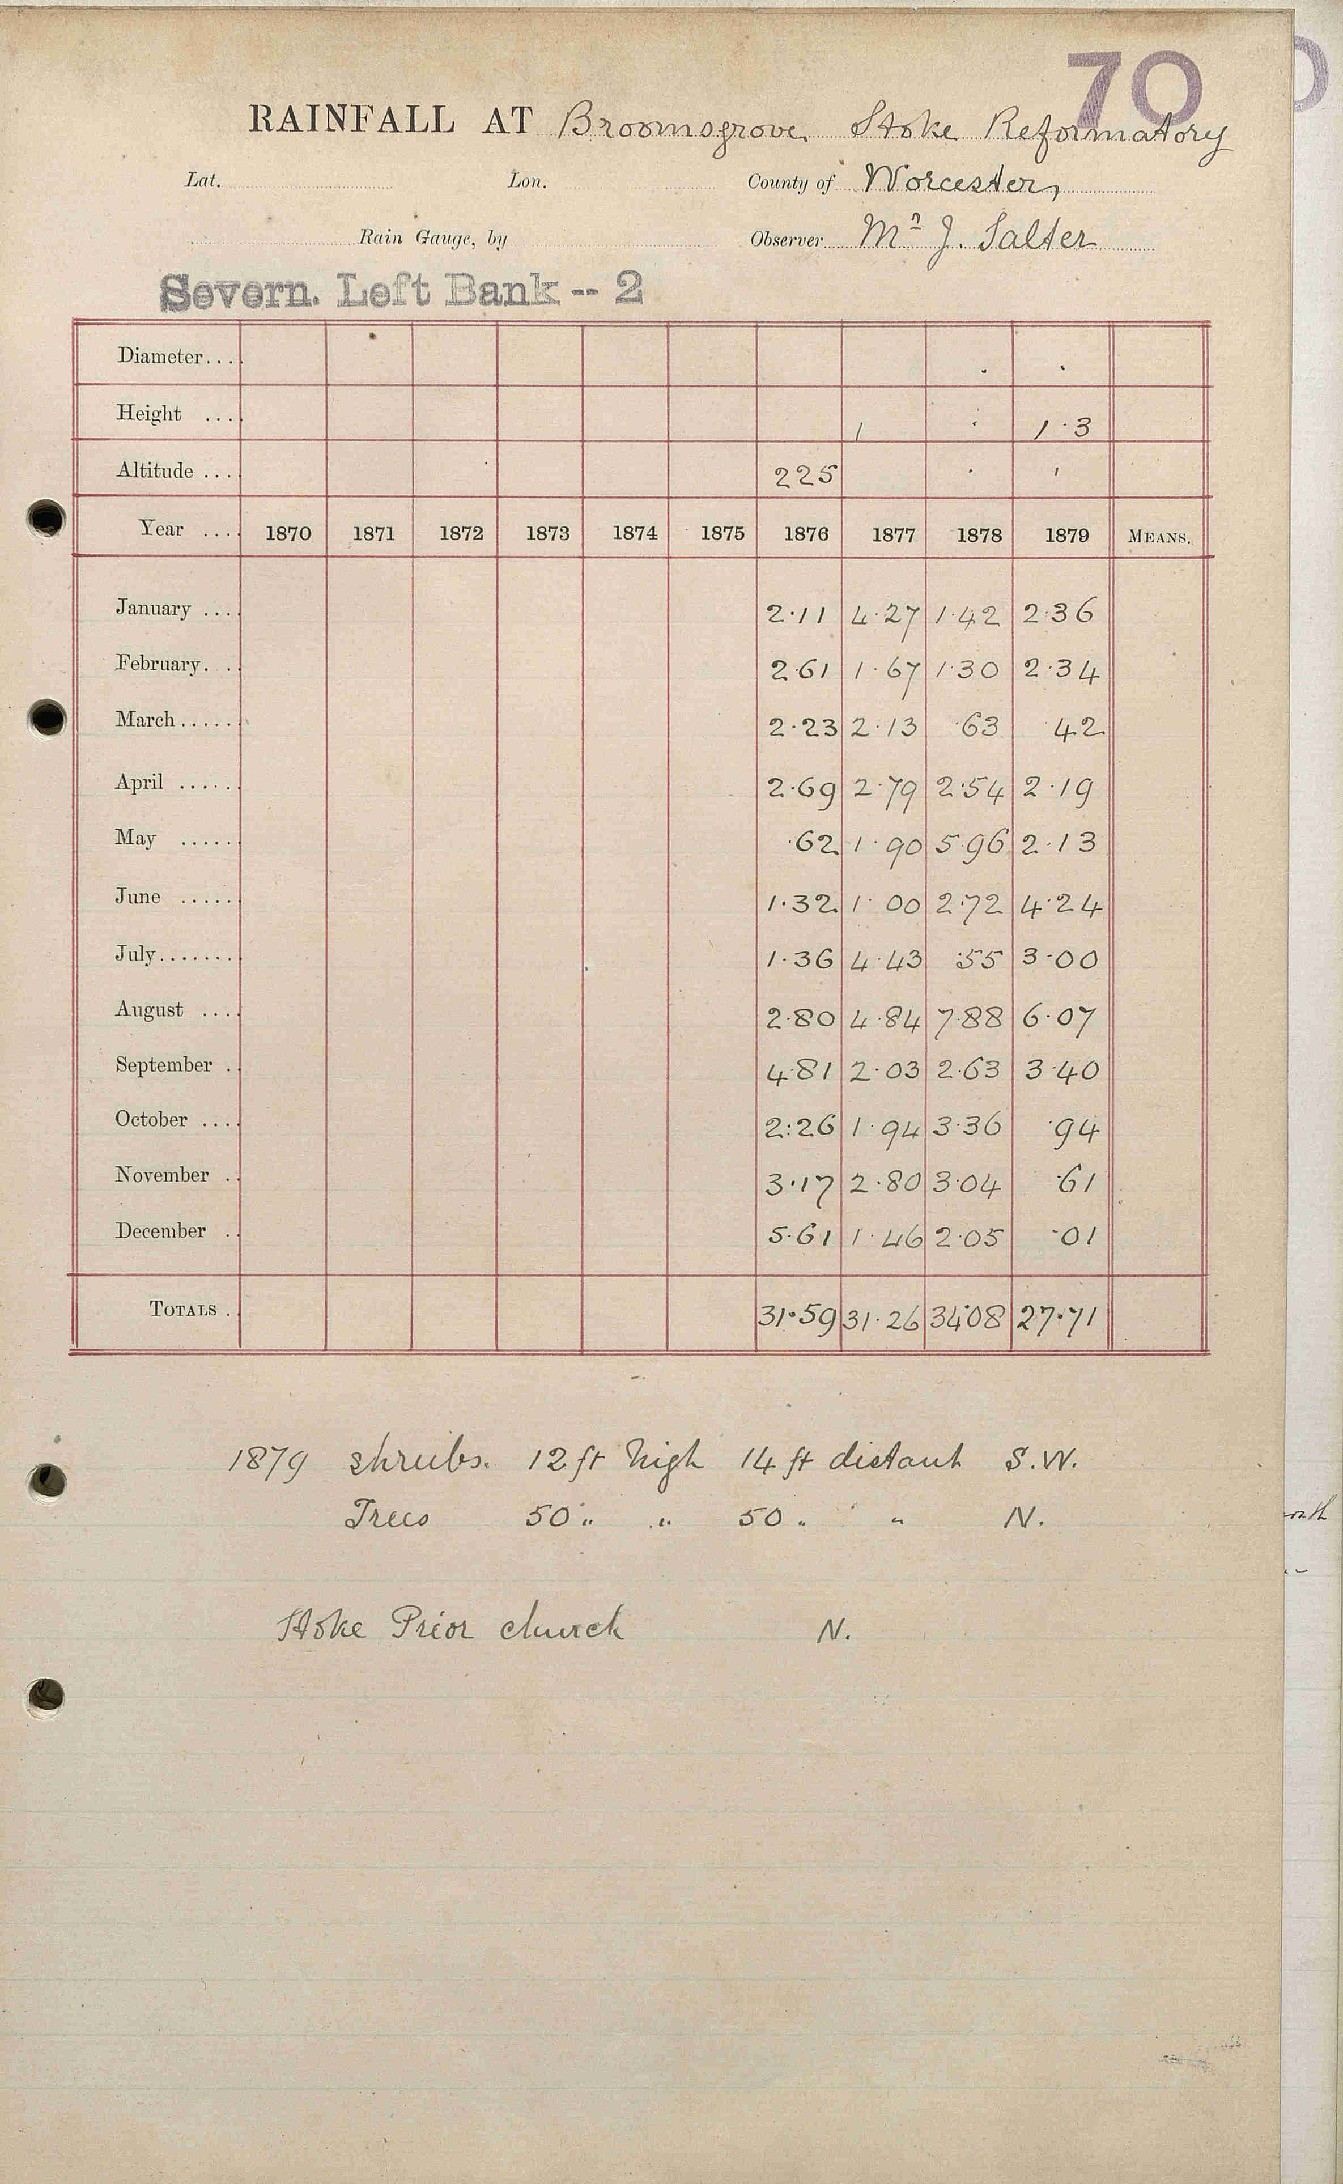 70
RAINFALL AT Bromsgrove Stoke Reformatory
Lat. Lon. County of Worcester
Rain Gauge, by Observer Mr J. Salter
Severn. Left Bank -- 2
Diameter....
Height .... 1 1·3
Altitude .... 225
Year .... 1870 1871 1872 1873 1874 1875 1876 1877 1878 1879 MEANS.
January .... 2·11 4·27 1·42 2·36
February... 2·61 1·67 1·30 2·34
March...... 2·23 2·13 ·63 ·42
April ...... 2·69 2·79 2·54 2·19
May ...... ·62 1·90 5·96 2·13
June ...... 1·32 1·00 2·72 4·24
July....... 1·36 4·43 ·55 3·00
August .... 2·80 4·84 7·88 6·07
September .. 4·81 2·03 2·63 3·40
October .... 2·26 1·94 3·36 ·94
November .. 3·17 2·80 3·04 ·61
December .. 5·61 1·46 2·05 ·01
TOTALS .. 31·59 31·26 34·08 27·71
1879 shrubs. 12 ft high 14 ft distant S.W.
Trees 50 " " 50 " " N.
Stoke Prior church N.